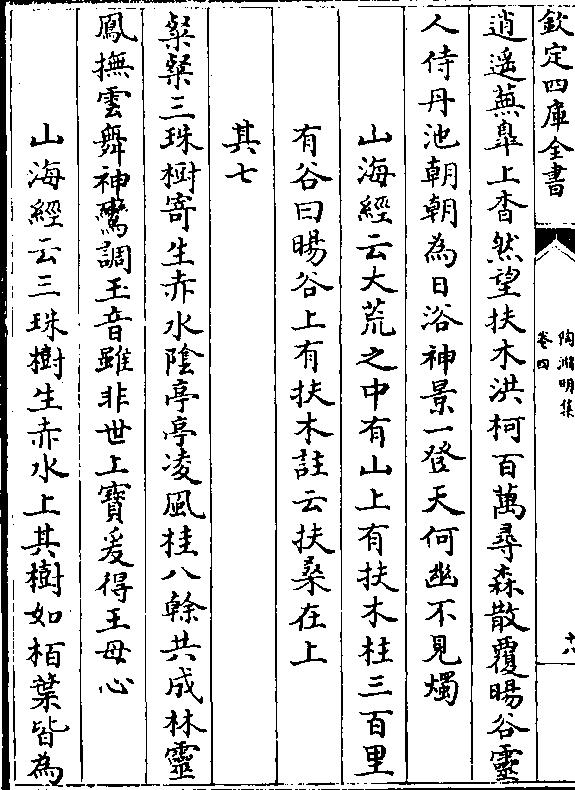 欽定四庫全書
陶淵明集
卷四
十八
逍遥蕪臯上杳然望扶木洪柯百萬尋森散覆暘谷靈
人侍丹池朝朝為日浴神景一登天何幽不見燭
山海經云大荒之中有山上有扶木柱三百里
有谷曰暘谷上有扶木註云扶桑在上
其七
粲粲三珠樹寄生赤水陰亭亭凌風桂八榦共成林靈
鳳撫雲舞神鸞調玉音雖非世上寶爰得王母心
山海經云三珠樹生赤水上其樹如栢葉皆為